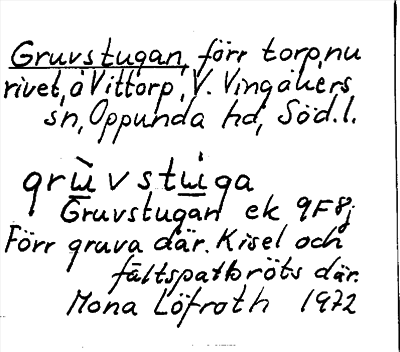 Gruvstugan, förr torp, nu
rivet, å Vittorp, V. Vingåkers
sn, Oppunda hd, Söd.l.
grɯ̀vstɯ́ga
Gruvstugan ek 9F8j
Förr gruva där. Kisel och
fältspatbröts där.
Mona Löfroth 1972